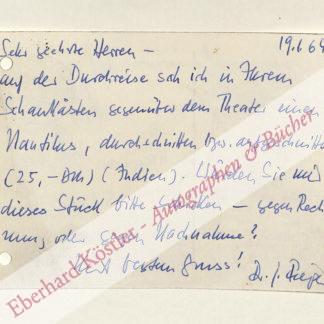 Sehr geehrte Herren – 19.6.64
auf der Durchreise sah ich in Ihrem
Schaukasten gegenüber dem Theater einen
Nautilus, durchschnitten bzw. aufgeschnitten
(25,– DM) (Indien). Würden Sie mir
dieses Stück bitte schicken – gegen Rech
nung, oder gegen Nachnahme?
Mit bestem Gruss! Dr. J.
Eberhard Köstler - Autographen & Bücher